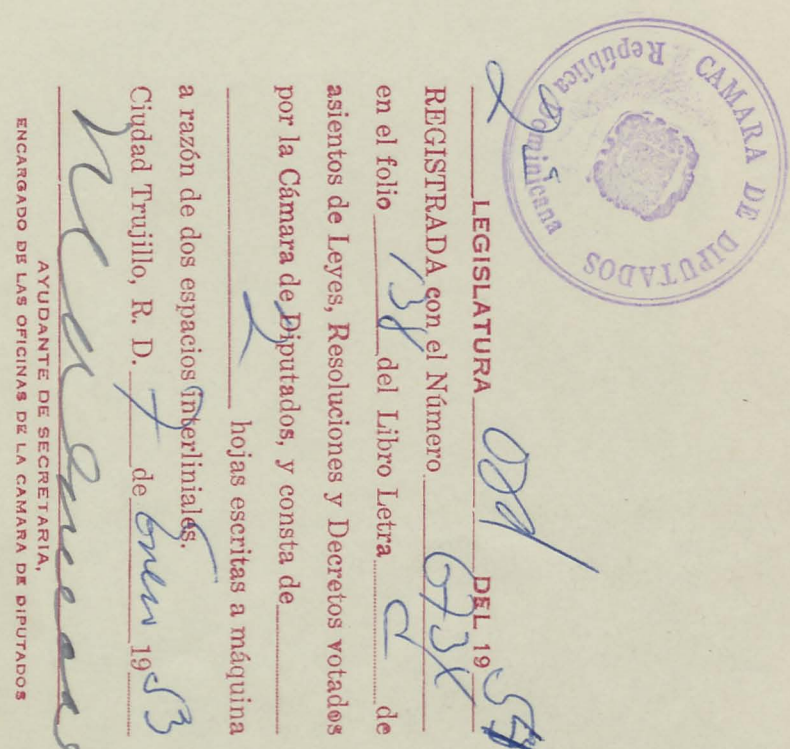 CAMARA DE DIPUTADOS
República Dominicana
LEGISLATURA DEL 19
REGISTRADA con el Número
en el folio 138 del Libro Letra de
asientos de Leyes, Resoluciones y Decretos votados
por la Cámara de Diputados, y consta de
2 hojas escritas a máquina
a razón de dos espacios interliniales.
Ciudad Trujillo, R. D. 7 de 1953
AYUDANTE DE SECRETARIA,
ENCARGADO DE LAS OFICINAS DE LA CAMARA DE DIPUTADOS